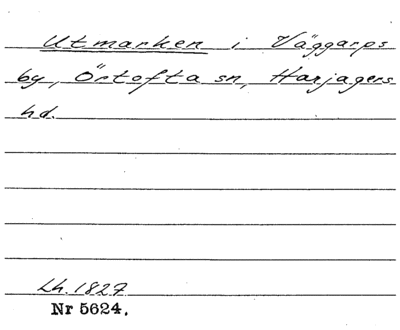 Utmarken i Väggarps
by, Örtofta sn, Harjagers
hd.
Lh. 1827
Nr 5624.